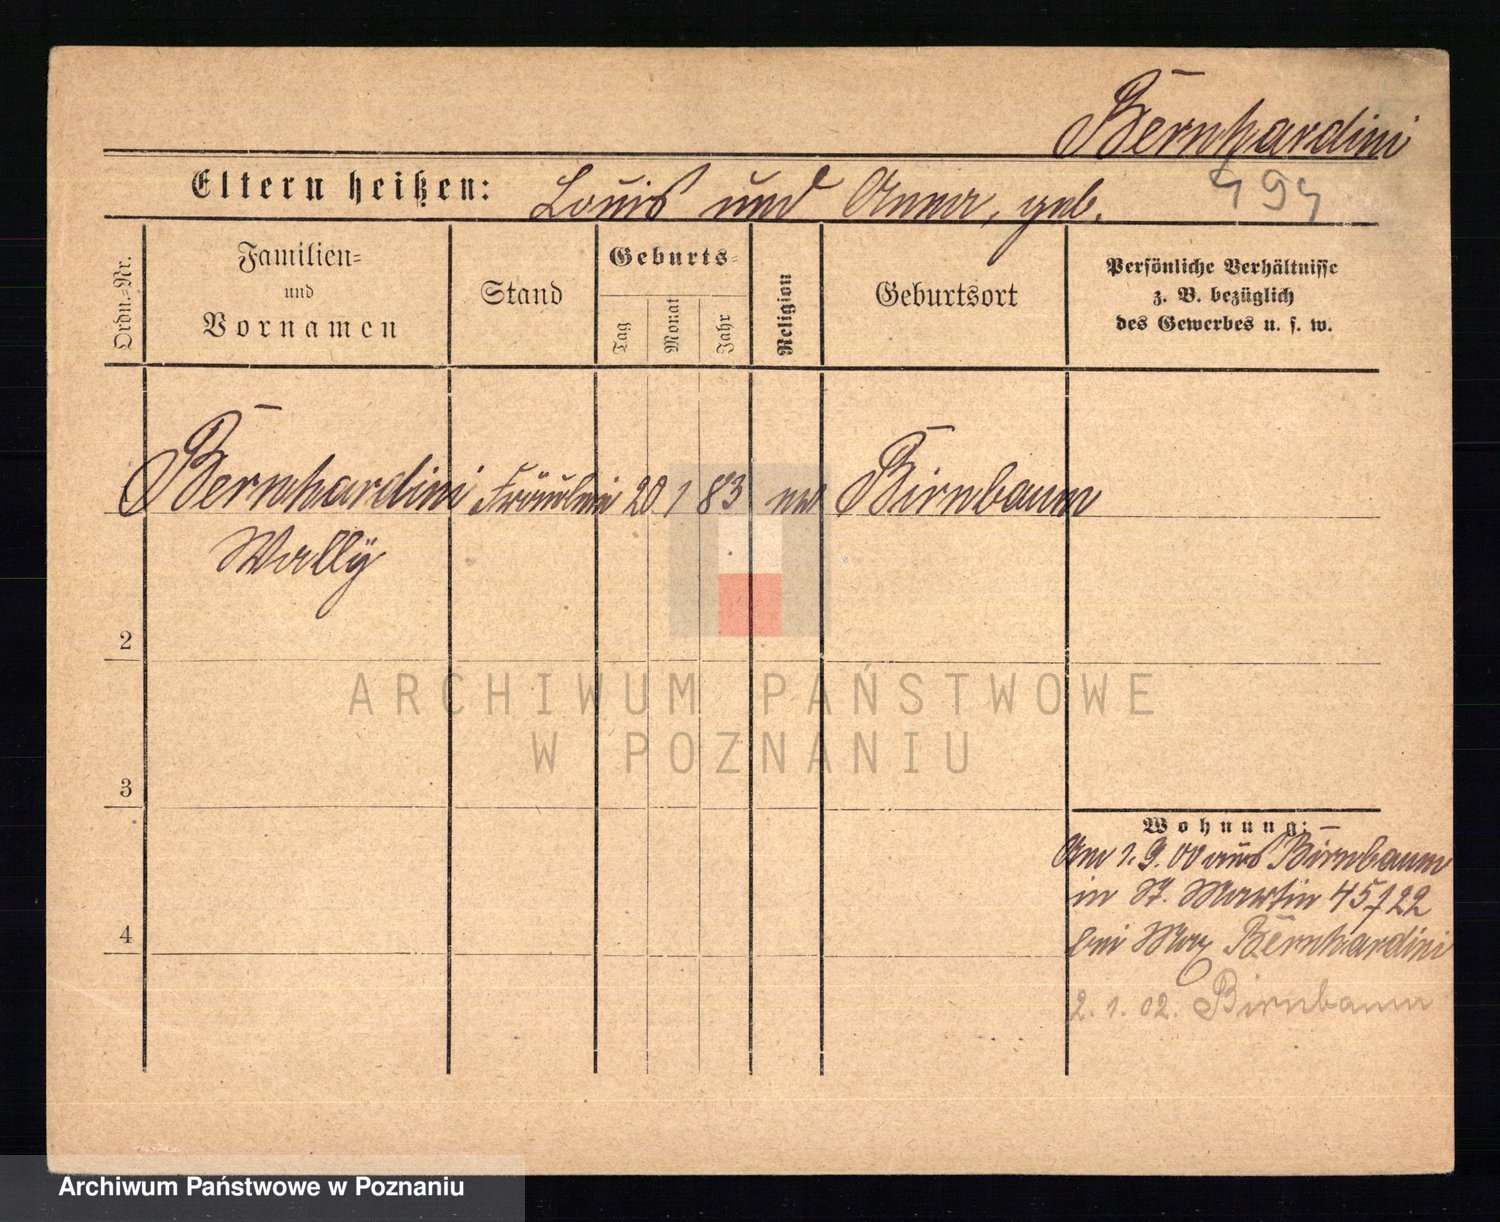 Bernhardini
Eltern heißen: Louis und Anna, geb.
Ordn.-Nr.
Familien-
und
Vornamen
Stand
Geburts-
Tag
Monat
Jahr
Religion
Geburtsort
Persönliche Verhältnisse
z. B. bezüglich
des Gewerbes u. s. w.
Bernhardini Fräulein 20 1 83 Birnbaum
Wally
2
3
4
Wohnung:
Am 1.9.00 aus Birnbaum
in St. Martin 45/22
bei Max Bernhardini
2.1.02. Birnbaum
ARCHIWUM PAŃSTWOWE
W POZNANIU
Archiwum Państwowe w Poznaniu